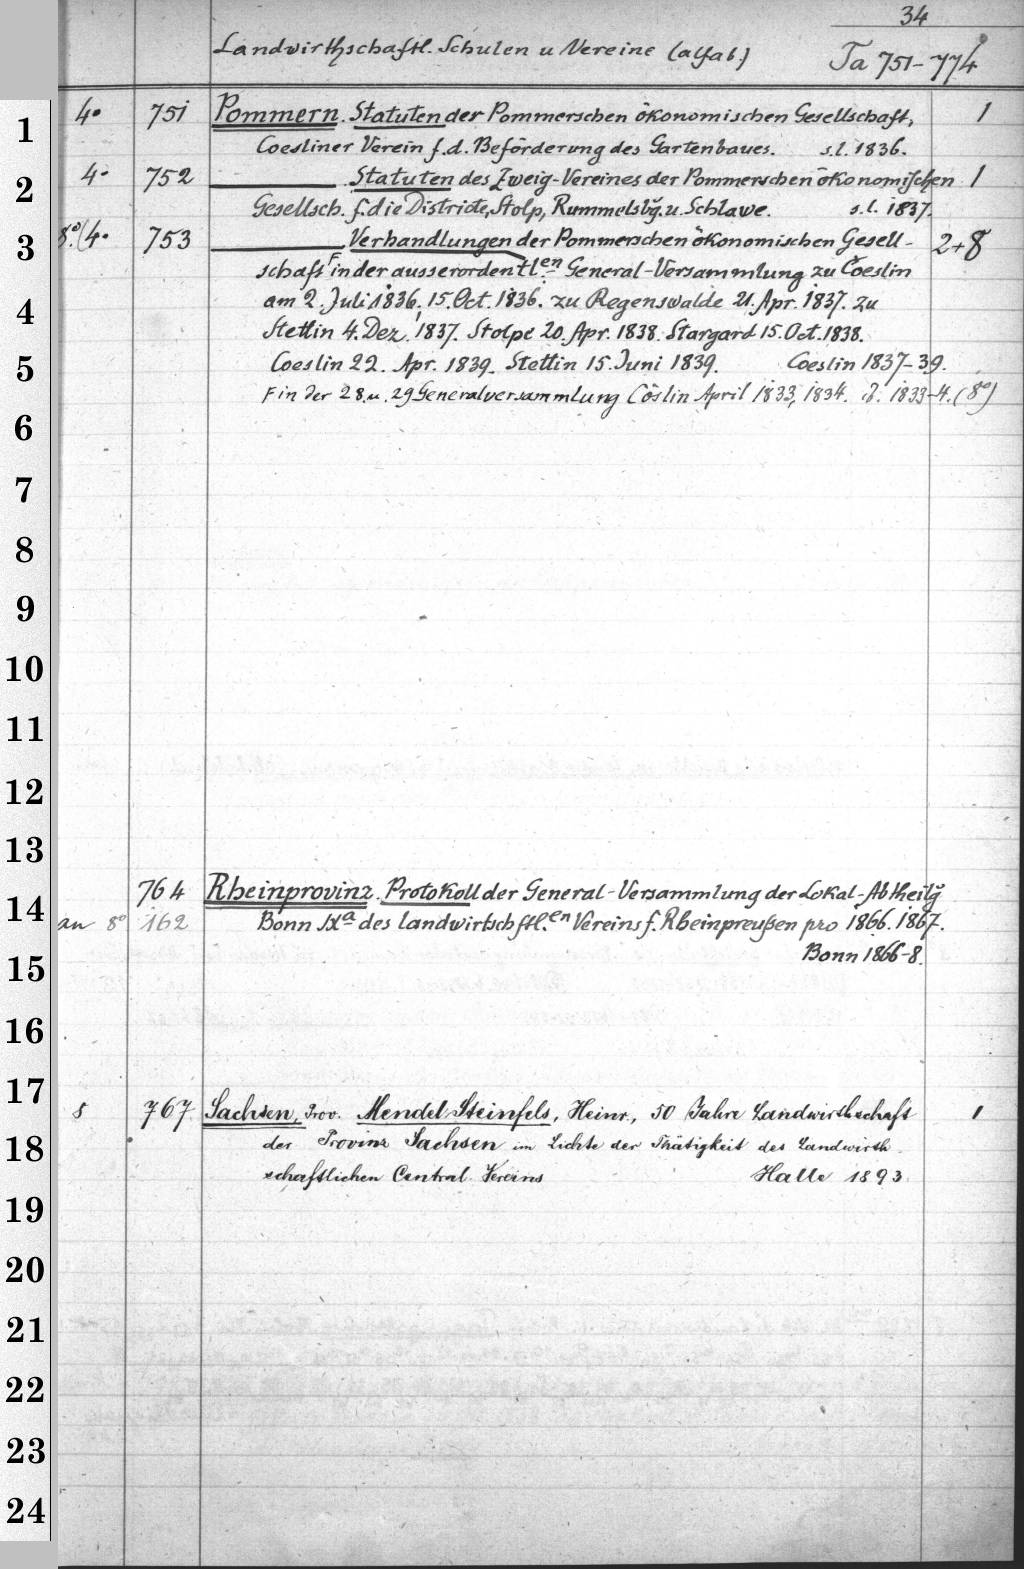 34
Landwirthschaftl. Schulen u Vereine (alfab.) Ta 751-774
1
2
3
4
5
6
7
8
9
10
11
12
13
14
15
16
17
18
19
20
21
22
23
24
4° 751 Pommern. Statuten der Pommerschen ökonomischen Gesellschaft, 1
Coesliner Verein f. d. Beförderung des Gartenbaues. s.l. 1836.
4° 752 ——— . Statuten des Zweig-Vereines der Pommerschen ökonomischen 1
Gesellsch. f. die Districte, Stolp, Rummelsbg. u. Schlawe. s.l. 1837.
8°/4° 753 ——— . Verhandlungen der Pommerschen ökonomischen Gesell- 2+8
schaft F in der ausserordentl.en General-Versammlung zu Coeslin
am 2. Juli 1836. 15. Oct. 1836. zu Regenswalde 21. Apr. 1837. zu
Stettin 4. Dez. 1837. Stolpe 20. Apr. 1838. Stargard 15. Oct. 1838.
Coeslin 22. Apr. 1839. Stettin 15. Juni 1839. Coeslin 1837-39.
F in der 28. u. 29 Generalversammlung Cöslin April 1833, 1834. 1833-4. (8°)
764 Rheinprovinz. Protokoll der General-Versammlung der Lokal-Abtheilg
an 8° 162 Bonn IXa des landwirtschftl.en Vereins f. Rheinpreußen pro 1866. 1867.
Bonn 1866-8.
8 767 Sachsen, Prov. Mendel-Steinfels, Heinr., 50 Jahre Landwirthschaft 1
der Provinz Sachsen im Lichte der Thätigkeit des Landwirth-
schaftlichen Central-Vereins Halle 1893.